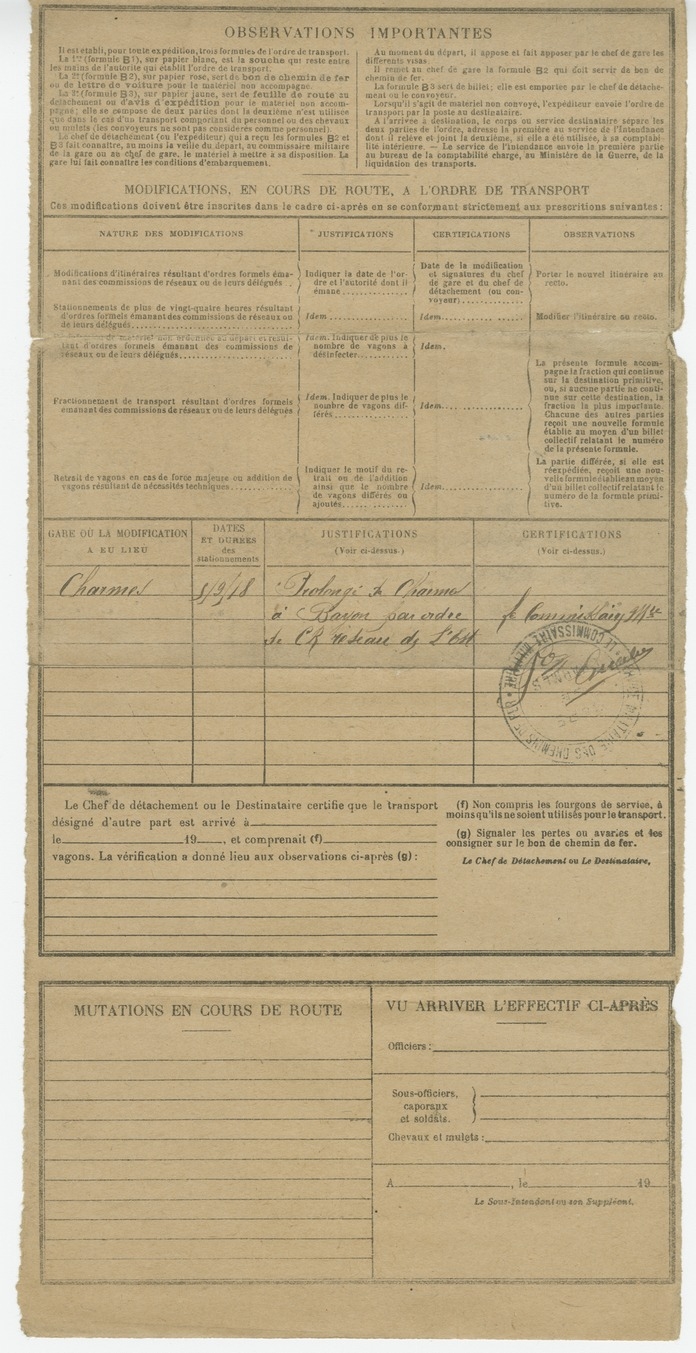 OBSERVATIONS IMPORTANTES
Il est établi, pour toute expédition, trois formules de l'ordre de transport.
La 1re (formule B1), sur papier blanc, est la souche qui reste entre
les mains de l'autorité qui établit l'ordre de transport.
La 2e (formule B2), sur papier rose, sert de bon de chemin de fer
ou de lettre de voiture pour le matériel non accompagné.
La 3e (formule B3), sur papier jaune, sert de feuille de route au
détachement ou d'avis d'expédition pour le matériel non accom-
pagné; elle se compose de deux parties dont la deuxième n'est utilisée
que dans le cas d'un transport comportant du personnel ou des chevaux
ou mulets (les convoyeurs ne sont pas considérés comme personnel).
Le chef de détachement (ou l'expéditeur) qui a reçu les formules B2 et
B3 fait connaître, au moins la veille du départ, au commissaire militaire
de la gare ou au chef de gare, le matériel à mettre à sa disposition. La
gare lui fait connaître les conditions d'embarquement.
Au moment du départ, il appose et fait apposer par le chef de gare les
différents visas.
Il remet au chef de gare la formule B2 qui doit servir de bon de
chemin de fer.
La formule B3 sert de billet; elle est emportée par le chef de détache-
ment ou le convoyeur.
Lorsqu'il s'agit de matériel non convoyé, l'expéditeur envoie l'ordre de
transport par la poste au destinataire.
A l'arrivée à destination, le corps ou service destinataire sépare les
deux parties de l'ordre, adresse la première au service de l'Intendance
dont il relève et joint la deuxième, si elle a été utilisée, à sa comptabi-
lité intérieure. — Le service de l'intendance envoie la première partie
au bureau de la comptabilité chargé, au Ministère de la Guerre, de la
liquidation des transports.
MODIFICATIONS, EN COURS DE ROUTE, A L'ORDRE DE TRANSPORT
Ces modifications doivent être inscrites dans le cadre ci-après en se conformant strictement aux prescritions suivantes :
NATURE DES MODIFICATIONS
JUSTIFICATIONS
CERTIFICATIONS
OBSERVATIONS
Modifications d'itinéraires résultant d'ordres formels éma-
nant des commissions de réseaux ou de leurs délégués .
Indiquer la date de l'or-
dre et l'autorité dont il
émane
Date de la modification
et signatures du chef
de gare et du chef de
détachement (ou con-
voyeur)
Porter le nouvel itinéraire au
recto.
Stationnements de plus de vingt-quatre heures résultant
d'ordres formels émanant des commissions de réseaux ou
de leurs délégués
Idem
Idem
Modifier l'itinéraire au recto.
tant d'ordres formels émanant des commissions de
réseaux ou de leurs délégués
Idem. Indiquer de plus le
nombre de vagons à
désinfecter
Idem.
Fractionnement de transport résultant d'ordres formels
émanant des commissions de réseaux ou de leurs délégués
Idem. Indiquer de plus le
nombre de vagons dif-
férés
Idem
La présente formule accom-
pagne la fraction qui continue
sur la destination primitive,
ou, si aucune partie ne conti-
nue sur cette destination, la
fraction la plus importante.
Chacune des autres parties
reçoit une nouvelle formule
établie au moyen d'un billet
collectif relatant le numéro
de la présente formule.
Retrait de vagons en cas de force majeure ou addition de
vagons résultant de nécessités techniques
Indiquer le motif du re-
trait ou de l'addition
ainsi que le nombre
de vagons différés ou
ajoutés
Idem
La partie différée, si elle est
réexpédiée, reçoit une nou-
velle formule établie au moyen
d'un billet collectif relatant le
numéro de la formule primi-
tive.
GARE OU LA MODIFICATION
A EU LIEU
DATES
ET DURÉES
des
stationnements
JUSTIFICATIONS
(Voir ci-dessus.)
CERTIFICATIONS
(Voir ci-dessus.)
Charmes
5/9/18
Prolongé de Charmes
à Bayon par ordre
de CR réseau de l'Est
LE COMMISSAIRE MILITAIRE
DES CHEMINS DE FER
Le Chef de détachement ou le Destinataire certifie que le transport
désigné d'autre part est arrivé à
le 19 , et comprenait (f)
vagons. La vérification a donné lieu aux observations ci-après (g) :
(f) Non compris les fourgons de service, à
moins qu'ils ne soient utilisés pour le transport.
(g) Signaler les pertes ou avaries et les
consigner sur le bon de chemin de fer.
Le Chef de Détachement ou Le Destinataire,
MUTATIONS EN COURS DE ROUTE
VU ARRIVER L'EFFECTIF CI-APRÈS
Officiers :
Sous-officiers,
caporaux
et soldats.
Chevaux et mulets :
A , le 19
Le Sous-Intendant ou son Suppléant,